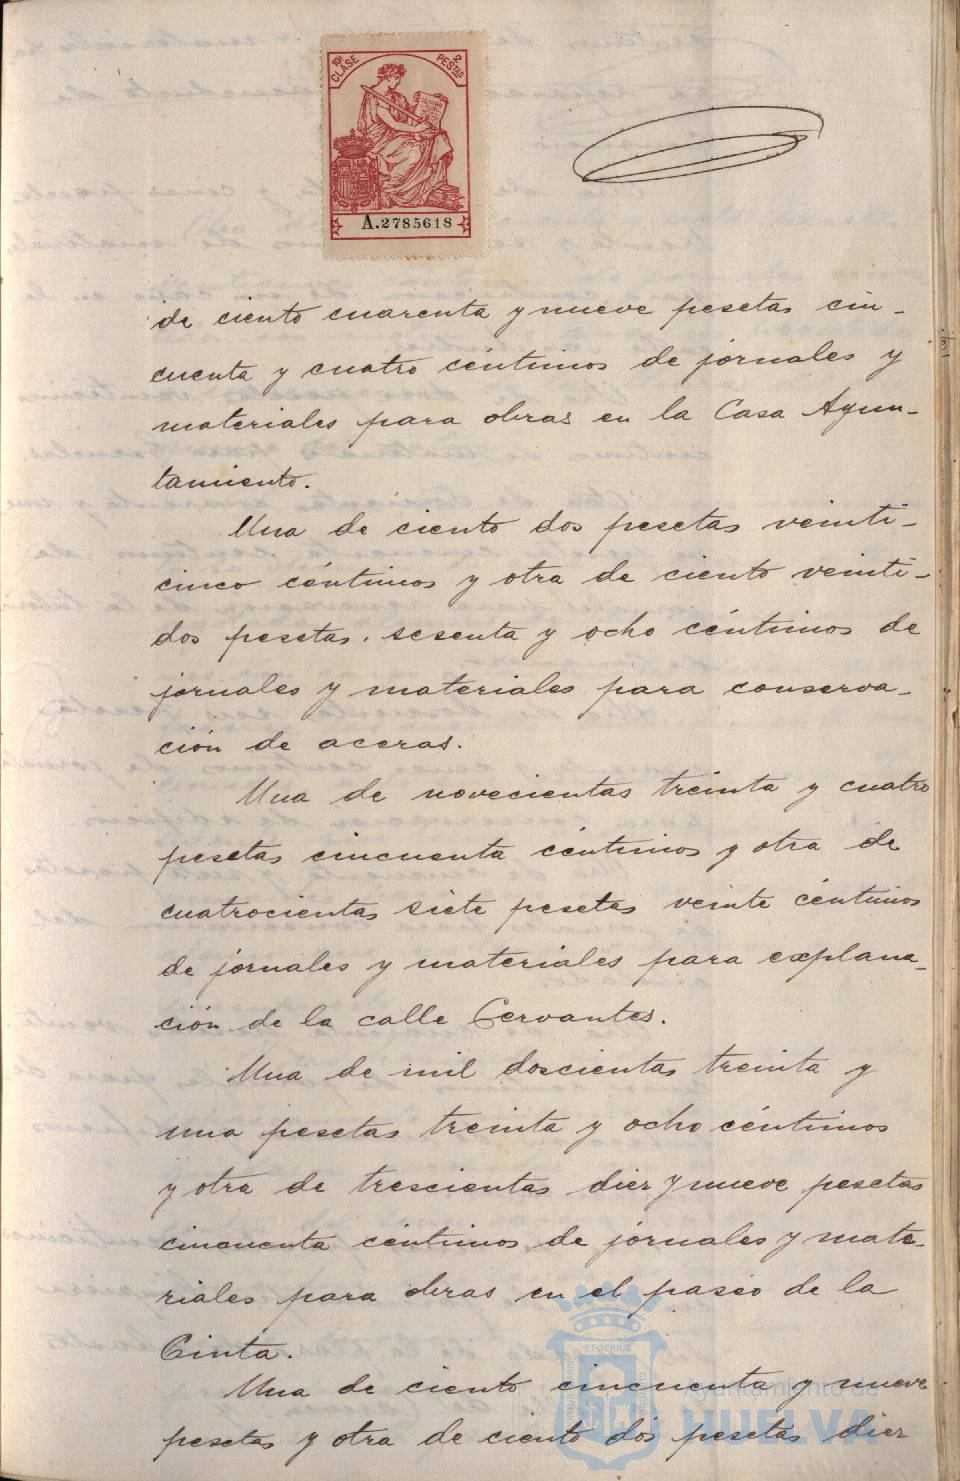 10ª CLASE 2 PESTAS
A.2785618
de ciento cuarenta y nueve pesetas cin-
cuenta y cuatro céntimos de jornales y
materiales para obras en la Casa Ayun-
tamiento.
Una de ciento dos pesetas veinti-
cinco céntimos y otra de ciento veinti-
dos pesetas. sesenta y ocho céntimos de
jornales y materiales para conserva-
ción de aceras.
Una de novecientas treinta y cuatro
pesetas cincuenta céntimos y otra de
cuatrocientas siete pesetas veinte céntimos
de jornales y materiales para explana-
ción de la calle Cervantes.
Una de mil doscientas treinta y
una pesetas treinta y ocho céntimos
y otra de trescientas diez y nueve pesetas
cincuenta céntimos, de jornales y mate-
riales para obras en el paseo de la
Cinta.
Una de ciento cincuenta y nueve
pesetas y otra de ciento dos pesetas diez
Ayuntamiento de
HUELVA